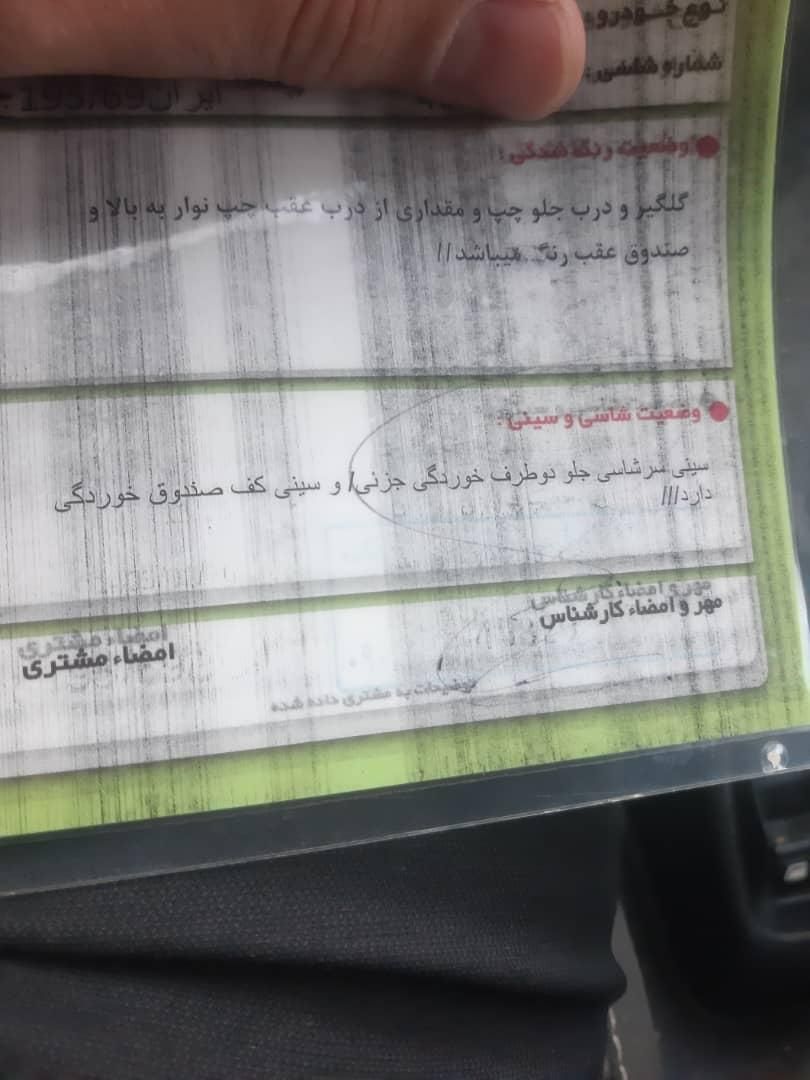 نوع خودرو:
شماره شاسی:
ایران
وضعیت رنگ شدگی:
گلگیر و درب جلو چپ و مقداری از درب عقب چپ نوار به بالا و
صندوق عقب رنگ میباشد//
وضعیت شاسی و سینی:
سینی سرشاسی جلو دوطرف خوردگی جزئی/ و سینی کف صندوق خوردگی
دارد///
مهر و امضاء کارشناس
مهر و امضاء کارشناس
امضاء مشتری
امضاء مشتری
توضیحات به مشتری داده شده